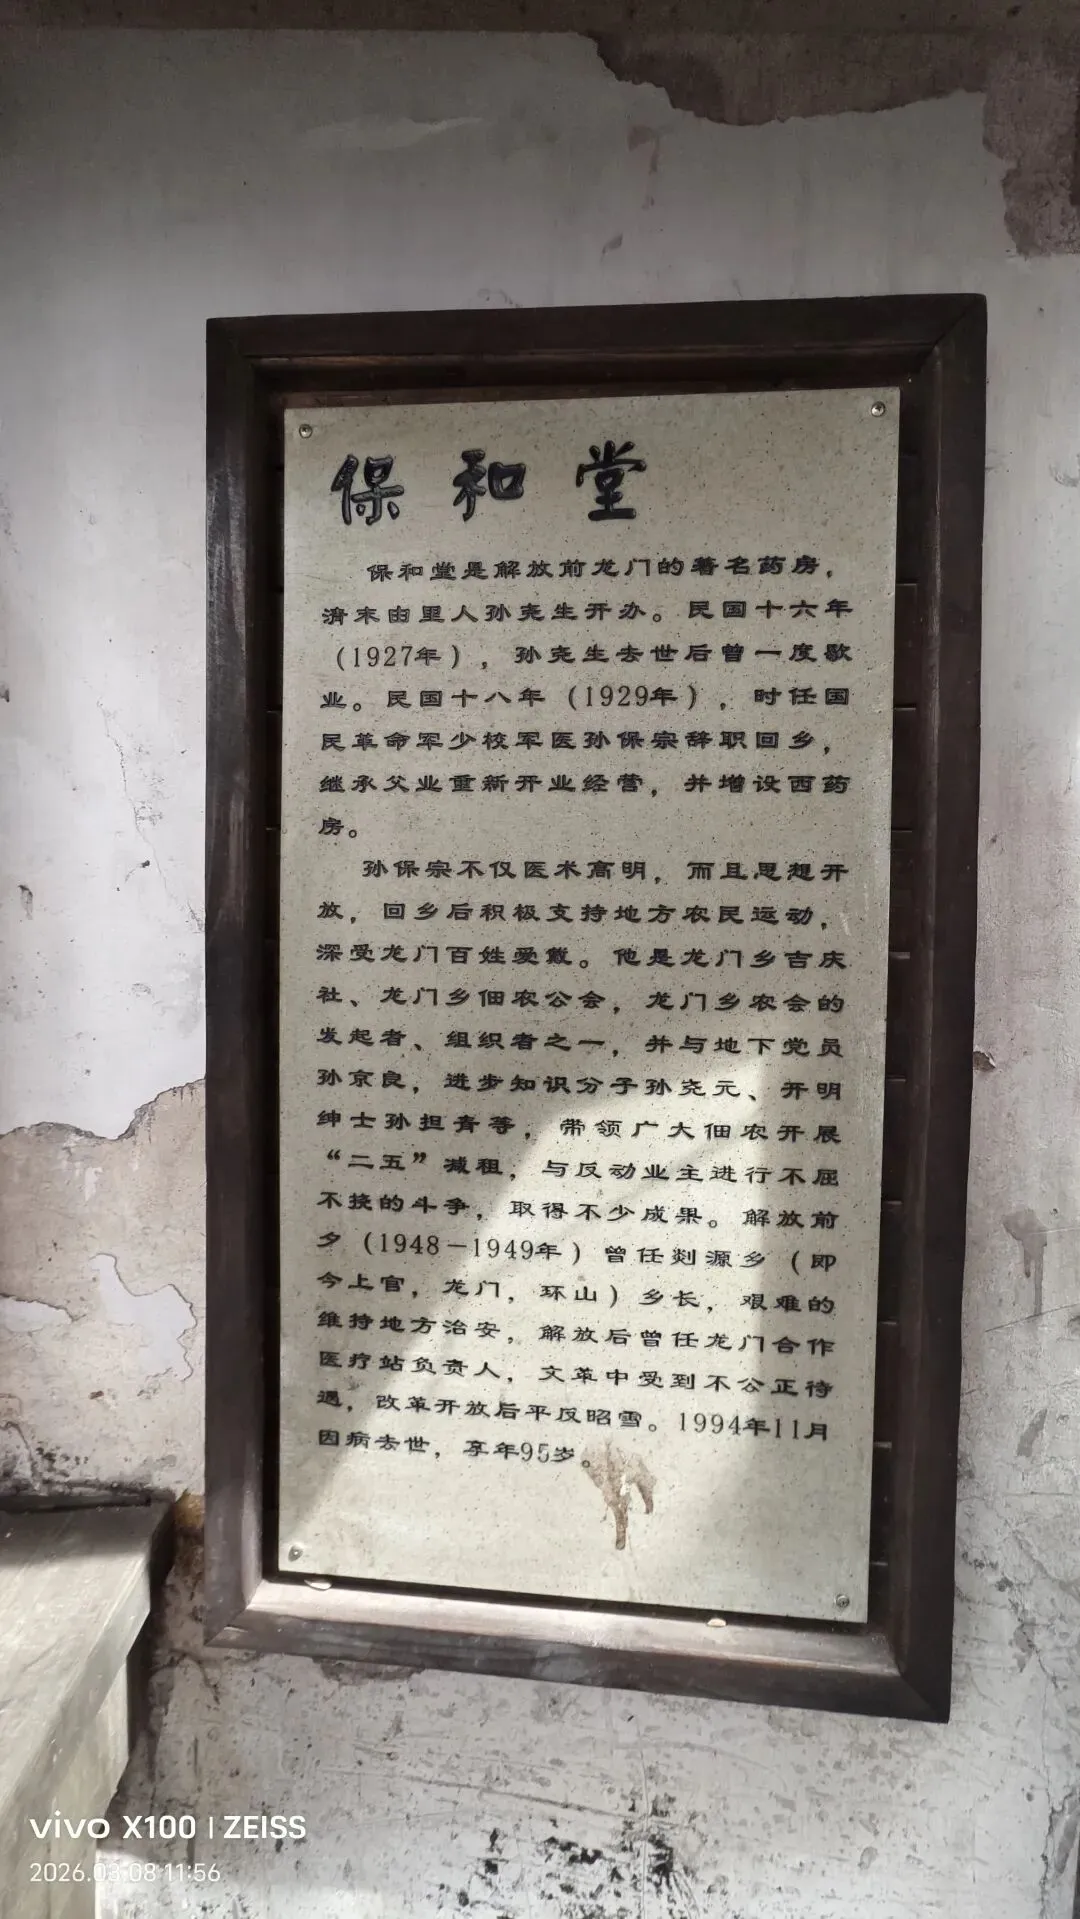 保和堂
保和堂是解放前龙门的著名药房，
清末由里人孙尧生开办。民国十六年
（1927年），孙尧生去世后曾一度歇
业。民国十八年（1929年），时任国
民革命军少校军医孙保宗辞职回乡，
继承父业重新开业经营，并增设西药
房。
孙保宗不仅医术高明，而且思想开
放，回乡后积极支持地方农民运动，
深受龙门百姓爱戴。他是龙门乡吉庆
社、龙门乡佃农公会，龙门乡农会的
发起者、组织者之一，并与地下党员
孙京良，进步知识分子孙尧元、开明
绅士孙担青等，带领广大佃农开展
“二五”减租，与反动业主进行不屈
不挠的斗争，取得不少成果。解放前
夕（1948－1949年）曾任剡源乡（即
今上官，龙门，环山）乡长，艰难的
维持地方治安，解放后曾任龙门合作
医疗站负责人，文革中受到不公正待
遇，改革开放后平反昭雪。1994年11月
因病去世，享年95岁。
vivo X100 | ZEISS
2026.03.08 11:56